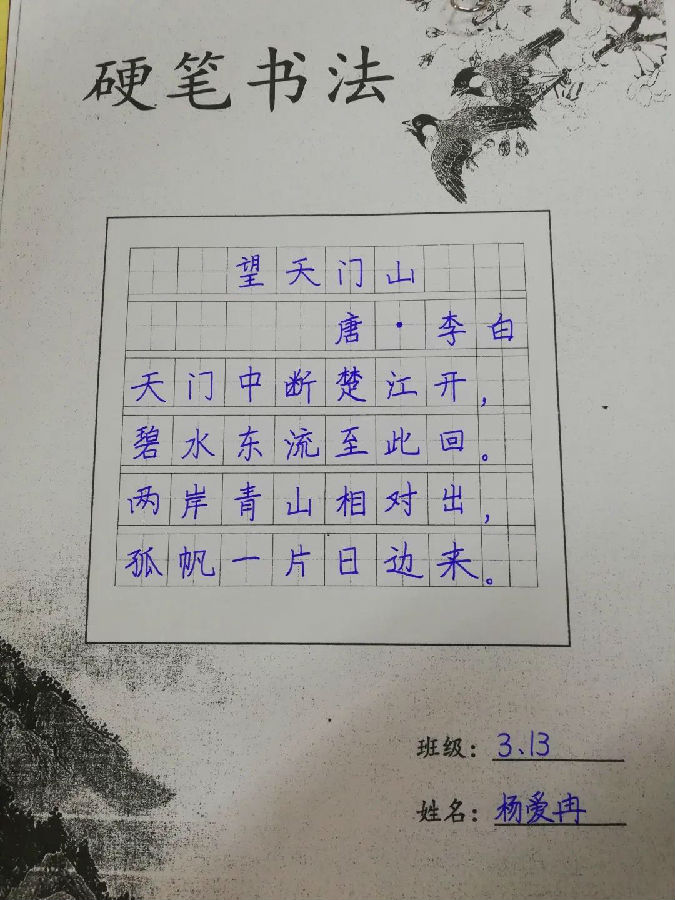 硬笔书法
望天门山
唐·李白
天门中断楚江开，
碧水东流至此回。
两岸青山相对出，
孤帆一片日边来。
班级：3、13
姓名：杨爱冉